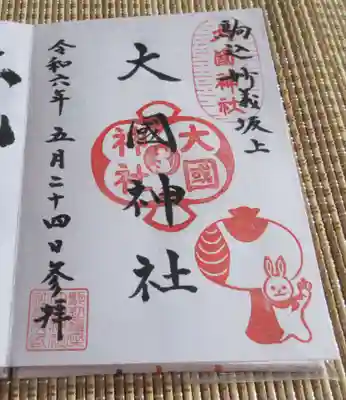 駒込妙義坂上
大國神社
大國神社
大國神社
令和六年五月二十四日参拝